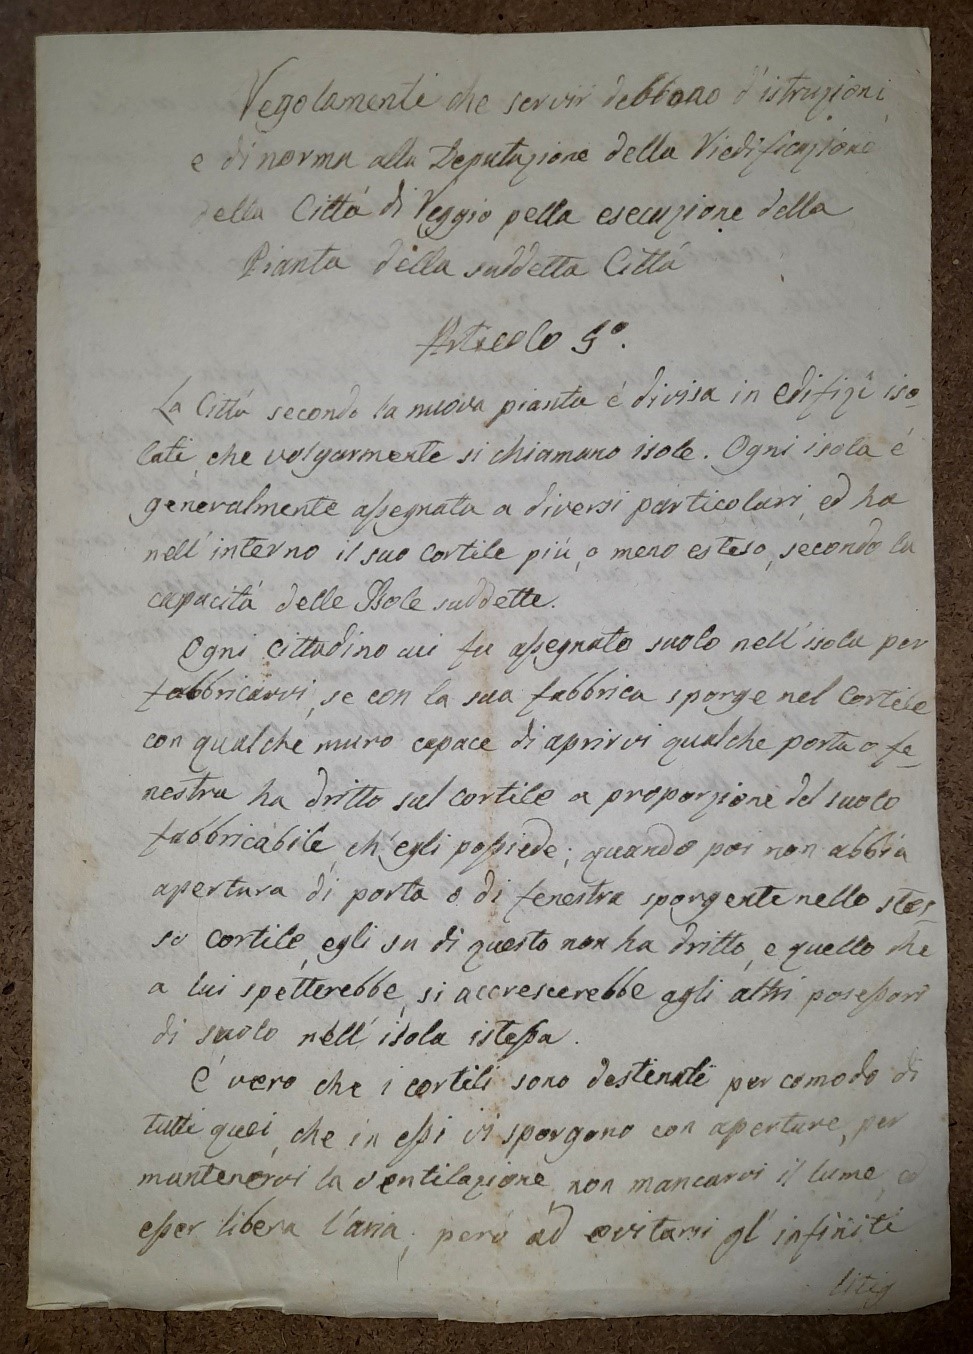 Regolamenti che servir debbono d'istruzioni
e di norma alla Deputazione della Riedificazione
della Cittá di Reggio pella esecuzione della
Pianta della suddetta Cittá
Articolo 5°.
La Cittá secondo la nuova pianta é divisa in edifizî iso-
lati, che volgarmente si chiamano isole. Ogni isola é
generalmente assegnata a diversi particolari, ed ha
nell'interno il suo cortile piú, o meno esteso, secondo la
capacitá delle Isole suddette.
Ogni cittadino cui fu assegnato suolo nell'isola per
fabbricarvi, se con la sua fabbrica sporge nel cortile
con qualche muro capace di aprirvi qualche porta o fe-
nestra ha dritto sul cortile a proporzione del suolo
fabbricabile, ch'egli possiede; quando poi non abbia
apertura di porta o di fenestra sporgente nello stes-
so cortile, egli su di questo non ha dritto, e quello che
a lui spetterebbe, si accrescerebbe agli altri posessori
di suolo nell'isola istessa.
É vero che i cortili sono destinati per comodo di
tutti quei, che in essi vi sporgono con aperture, per
mantenervi la ventilazione, non mancarvi il lume, ed
esser libera l'aria; peró ad evitarsi gl'infiniti
litig